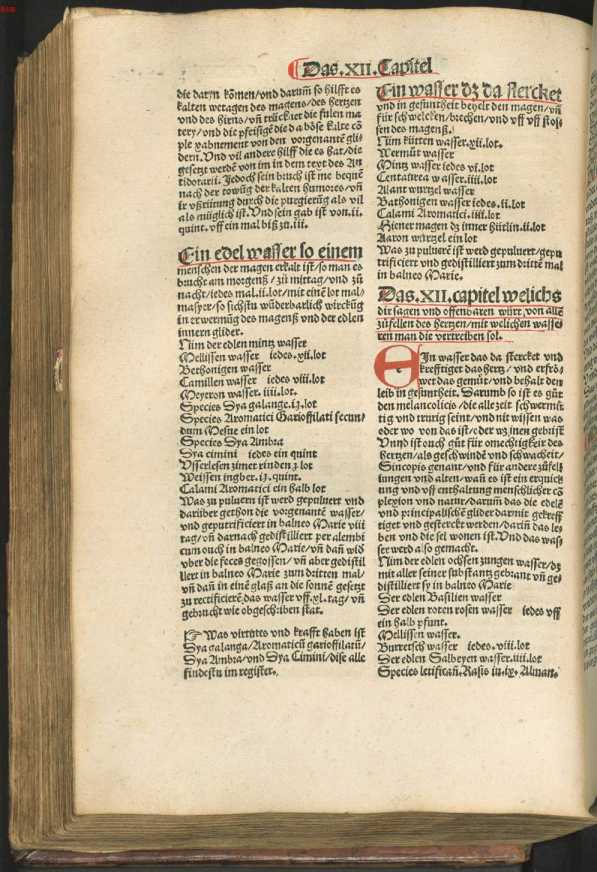 Das.XII.Capitel
die daryn kömen/vnd darum̄ so hilfft es
kalten wetagen des magens/des hertzen
vnd des hirns/vn̄ trücknet die fulen ma
tery/vnd die pfeisige die da böse kalte cō
plexionem von den vorgenantē gli-
dern. Vnd vil andere hilff die es hat/die
gesetzt werdē von im in dem text des An
tidotarij. Jedoch sein bruch ist me bequē
nach der der kalten humores/vn̄
ir vßrürung durch die purgierūg als vil
als müglich ist. Vnd sein gab ist von.ii.
quint. vff ein mal biß zů.iii.
Ein edel wasser so einem
menschen der magen erkalt ist/so man es
brucht am morgenß/zů mittag/vnd zů
nacht/iedes mal.ii.lot/mit einē lot mal-
masyer/so sichstu wūderbarlich wirckūg
in erwermūg des magenß vnd der edlen
innern glider.
Nim der edlen mintz wasser
Mellissen wasser iedes.xii.lot
Bethonigen wasser
Camillen wasser iedes viii.lot
Meyeron wasser. iiii.lot.
Species Dya galange.iȝ.lot
Species Aromatici Gariofilati secun-
dum Mesue ein lot
Species Dya Ambra
Dya cimini iedes ein quint
Vsserlesen zimet rinden ȝ lot
Weissen ingber.iȝ.quint.
Calami Aromatici ein halb lot
Was zu puluern ist werd gepuluert vnd
darüber gethon die vorgenantē wasser/
vnd geputrificiert in balneo Marie viii
tag/vn̄ darnach gedistilliert per alembi
cum ouch in balneo Marie/vn̄ dan̄ wid
vber die feces gegossen/vn̄ aber gedistil
liert in balneo Marie zum dritten mal/
vn̄ dan̄ in einē glaß an die sonnē gesetzt
zu rectificierē das wasser vff.xl.tag/vn̄
gebrucht wie obgeschriben stat.
☞ Was virtutes vnd krafft haben ist
Dya galanga/Aromaticū gariofilatū/
Dya Ambra/vnd Dya Cimini/dise alle
findestu im register.
Ein wasser dȝ da stercket
vnd in gesuntheit behelt den magen/vn̄
für schwelcken/brechen/vnd vff vff stos-
sen des magenß.
Nim kütten wasser.xii.lot.
Wermůt wasser
Mintz wasser iedes vi.lot
Centaurea wasser.iiii.lot
Alant wurtzel wasser
Bathonigen wasser iedes.ii.lot
Calami Aromatici.iiii.lot
Hiener magen dȝ inner hütlin.ii.lot
Aaron wurtzel ein lot
Was zu puluerē ist werd gepuluert/gepu
trificiert vnd gedistilliert zum drittē mal
in balneo Marie.
Das.XII.capitel welichs
dir sagen vnd offenbaren würt von allē
zůfellen des hertzen/mit welichen wasse
ren man die vertreiben sol.
EIn wasser das da stercket vnd
krefftiget das hertz/vnd erfrö-
wet das gemůt/vnd behalt den
leib in gesuntheit. Darumb so ist es gůt
den melancolicis/die alle zeit schwermůt
tig vnd trurig seint/vnd nit wissen was
oder wo von das ist/der wȝ inen gebrist
Vnnd ist ouch gůt für omechtigkeit des
hertzen/als geschwinde vnd schwacheit/
Sincopis genant/vnd für andere zůfel-
lungen vnd alten/wan̄ es ist ein erquick
ung vnd vff enthaltung menschlicher cō
plexion vnd natur/darum̄ das die edelē
vnd principalischē glider darmit gekreff
tiget vnd gesterckt werden/darin̄ das le-
ben vnd die sel wonen ist. Vnd das was-
ser werd also gemacht.
Nim der edlen ochsen zungen wasser/dȝ
mit aller seiner substantz gebrant vn̄ ge-
distilliert sy in balneo Marie
Der edlen Basilien wasser
Der edlen roten rosen wasser iedes vff
ein halb pfunt.
Mellissen wasser.
Burretsch wasser iedes.viii.lot
Der edlen Salbeyen wasser.iiii.lot
Species letifican̄.Rasis in.ix. Alman.